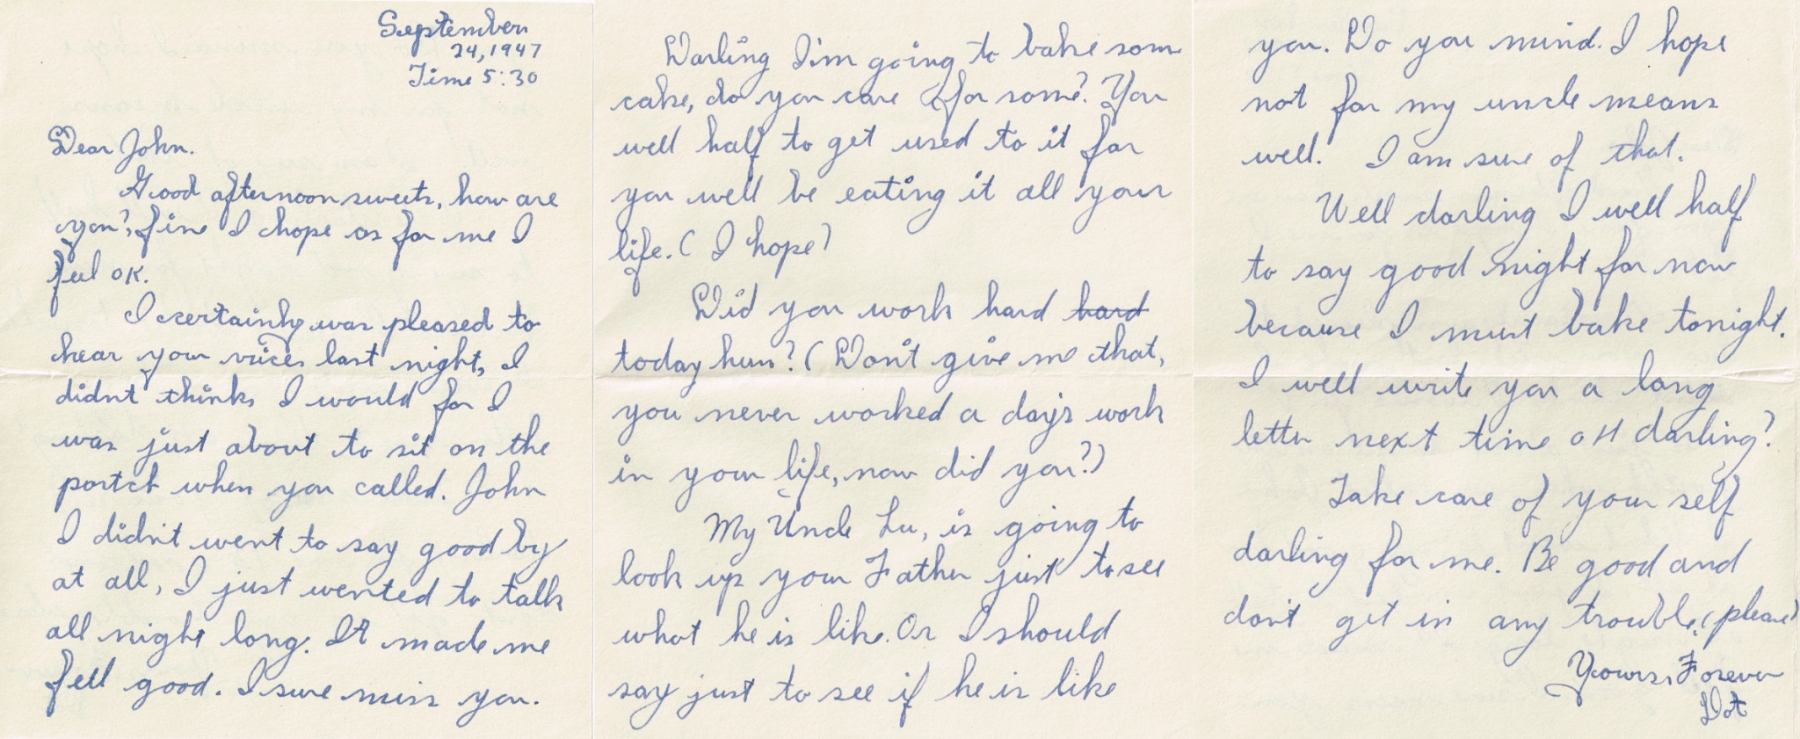 September
24, 1947
Time 5:30
Dear John.
Good afternoon sweets, how are
you? fine I hope as for me I
feel OK.
I certainly was pleased to
hear your voices last night, I
didnt think, I would for I
was just about to sit on the
portch when you called. John
I didn't went to say good by
at all, I just wented to talk
all night long. It made me
fell good. I sure miss you.
Darling I'm going to bake som
cake, do you care for some? You
well half to get used to it for
you well be eating it all your
life. ( I hope)
Did you work hard hard
today hun? ( Don't give me that,
you never worked a day's work
in your life, now did you?)
My Uncle Lu, is going to
look up your Father just to see
what he is like. Or I should
say just to see if he is like
you. Do you mind. I hope
not for my uncle means
well. I am sure of that.
Well darling I well half
to say good night for now
because I must bake tonight.
I well write you a long
letter next time OK darling?
Take care of your self
darling for me. Be good and
don't get in any trouble. (please)
Yours, Forever
Dot